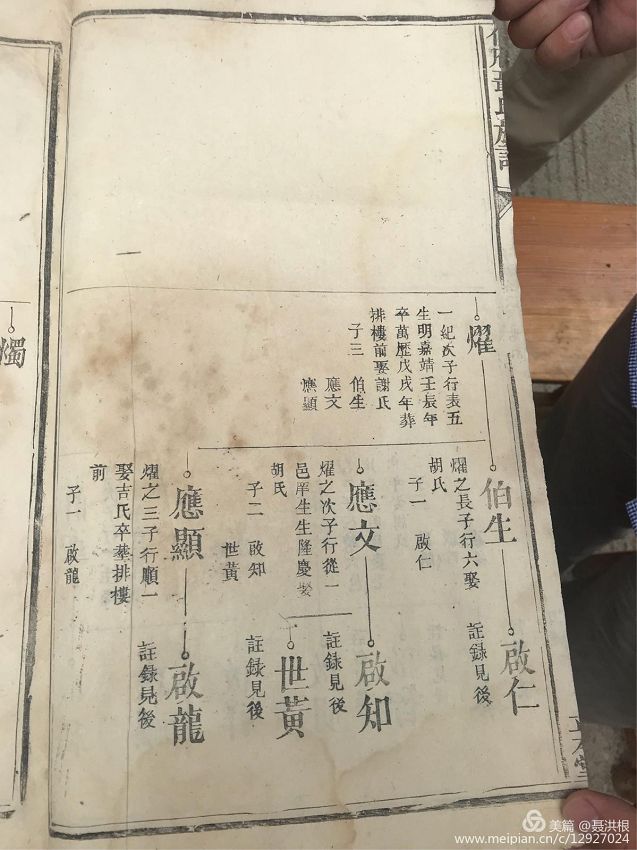 燿
一紀次子行表五
生明嘉靖壬辰年
卒萬歷戊戌年葬
排樓前娶謝氏
子三
伯生
應文
應顯
伯生
燿之長子行六娶
胡氏
子一 啟仁
啟仁
註錄見後
應文
燿之次子行從一
邑庠生生隆慶娶
胡氏
子二 啟知
世黃
啟知
註錄見後
世黃
註錄見後
應顯
燿之三子行順一
娶吉氏卒葬排樓
前
子一 啟龍
啟龍
註錄見後
燭
美篇 @聂洪根
www.meipian.cn/c/12927024